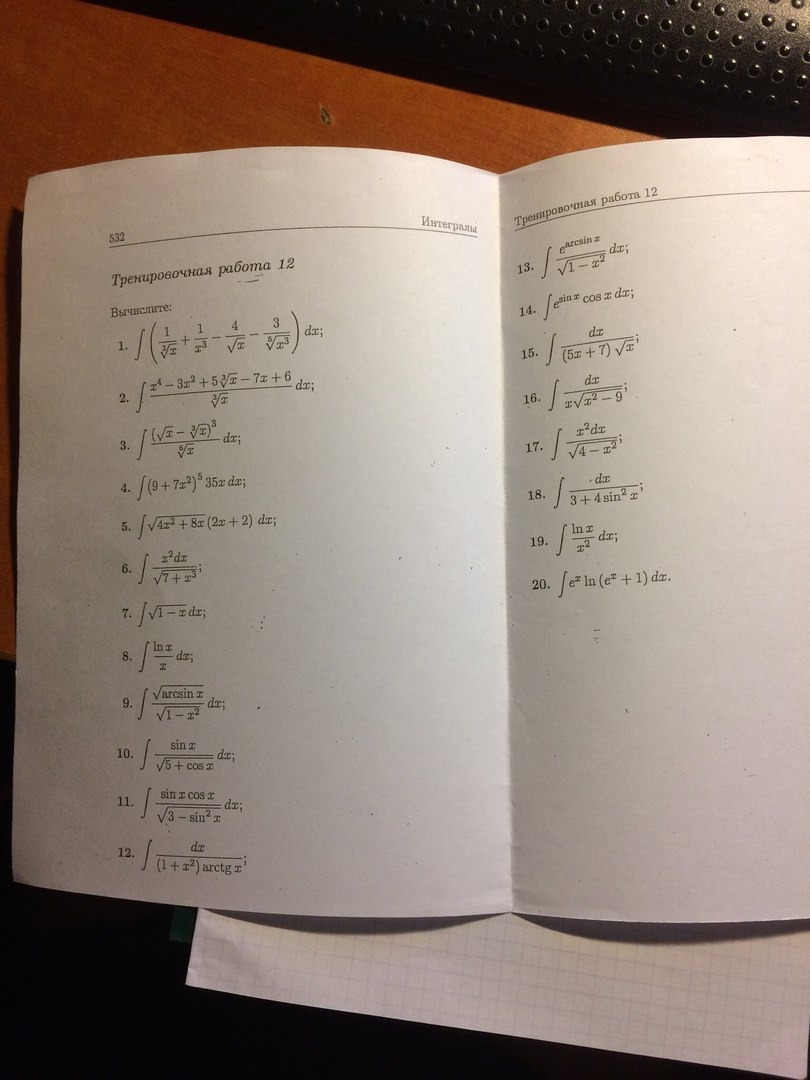 532 Интегралы
Тренировочная работа 12
Вычислите:
1. ∫ (1/∛x + 1/x³ − 4/√x − 3/⁵√x³) dx;
2. ∫ (x⁴ − 3x² + 5∛x − 7x + 6)/∛x dx;
3. ∫ (√x − ∛x)³/⁶√x dx;
4. ∫ (9 + 7x²)⁵ 35x dx;
5. ∫ √(4x² + 8x) (2x + 2) dx;
6. ∫ x²dx/√(7 + x³);
7. ∫ √(1 − x) dx;
8. ∫ ln x/x dx;
9. ∫ √(arcsin x)/√(1 − x²) dx;
10. ∫ sin x/√(5 + cos x) dx;
11. ∫ sin x cos x/√(3 − sin² x) dx;
12. ∫ dx/((1 + x²) arctg x);
Тренировочная работа 12
13. ∫ e^(arcsin x)/√(1 − x²) dx;
14. ∫ e^(sin x) cos x dx;
15. ∫ dx/((5x + 7) √x);
16. ∫ dx/(x√(x² − 9));
17. ∫ x²dx/√(4 − x²);
18. ∫ dx/(3 + 4 sin² x);
19. ∫ ln x/x² dx;
20. ∫ eˣ ln (eˣ + 1) dx.